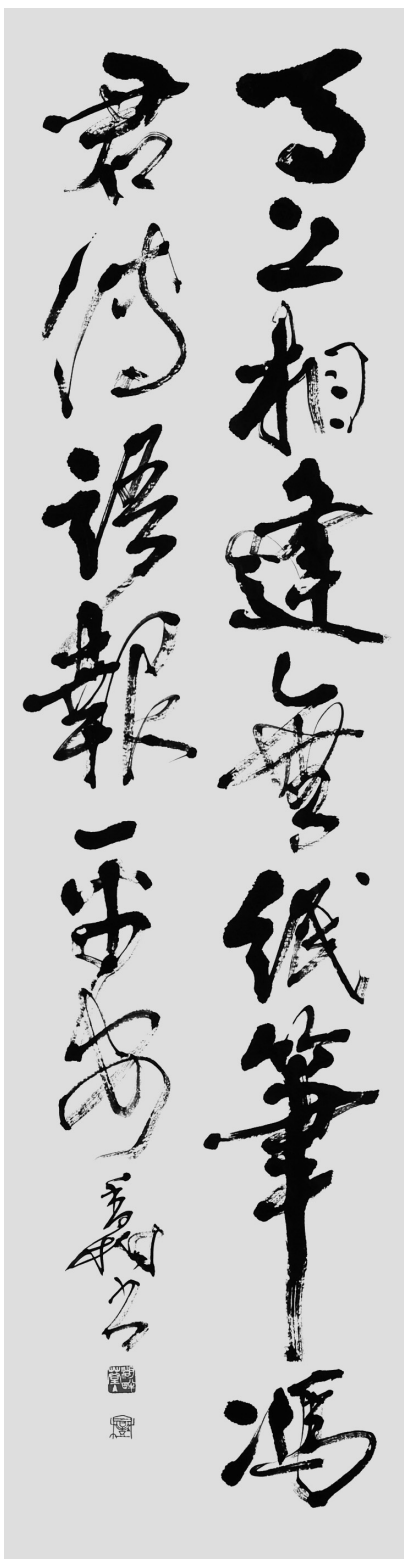 馬上相逢無紙筆馮
君傳語報平安